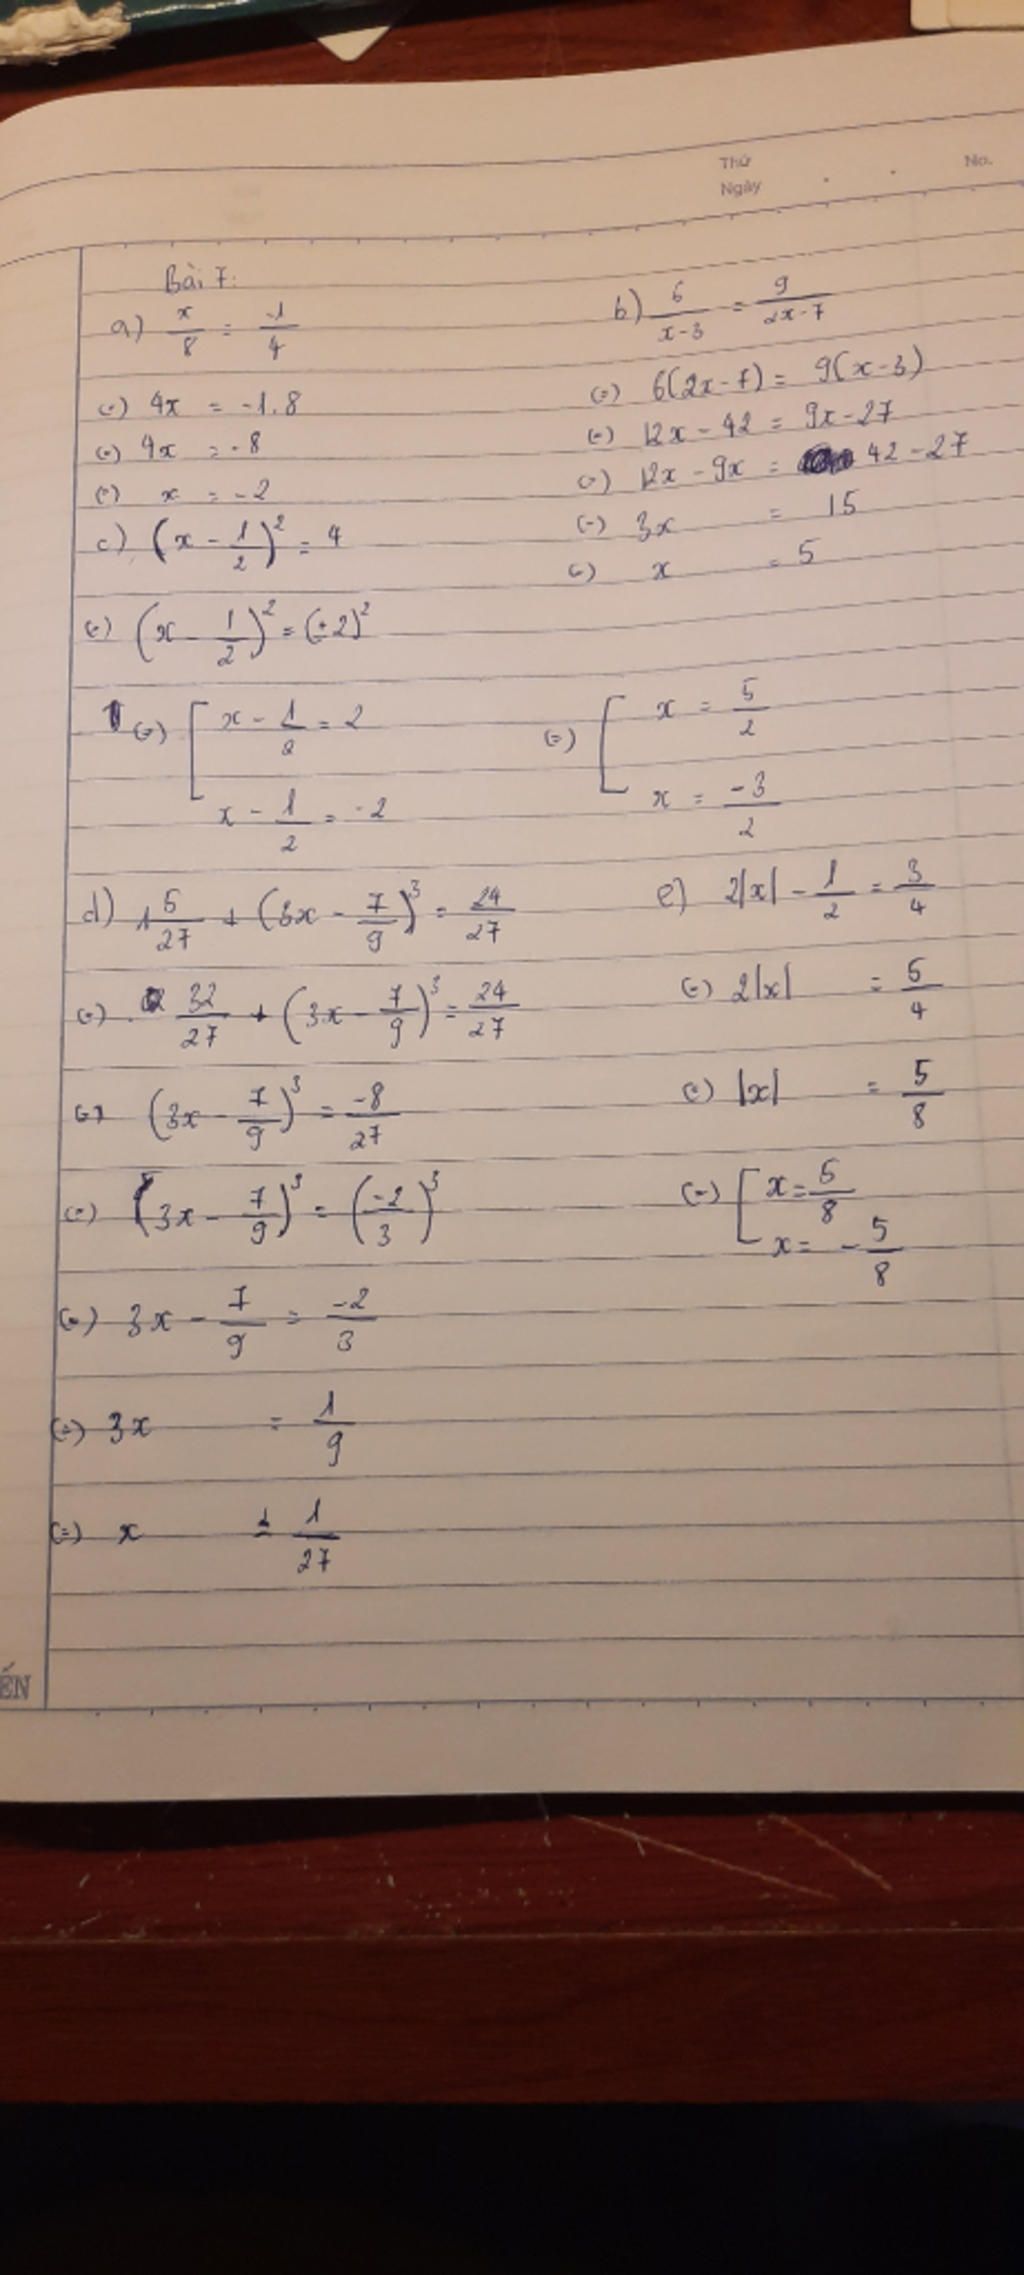 Thứ
Ngày
No.
Bài 7:
a) x/8 = -1/4
(=) 4x = -1.8
(=) 4x = -8
(=) x = -2
b) 6/(x-3) = 9/(2x-7)
(=) 6(2x-7) = 9(x-3)
(=) 12x - 42 = 9x - 27
(=) 12x - 9x = 42 - 27
(=) 3x = 15
(=) x = 5
c) (x - 1/2)² = 4
(=) (x - 1/2)² = (±2)²
(=) [ x - 1/2 = 2
x - 1/2 = -2
(=) [ x = 5/2
x = -3/2
d) 1 5/27 + (3x - 7/9)³ = 24/27
(=) 32/27 + (3x - 7/9)³ = 24/27
(=) (3x - 7/9)³ = -8/27
(=) (3x - 7/9)³ = (-2/3)³
(=) 3x - 7/9 = -2/3
(=) 3x = 1/9
(=) x = 1/27
e) 2|x| - 1/2 = 3/4
(=) 2|x| = 5/4
(=) |x| = 5/8
(=) [ x = 5/8
x = - 5/8
ẾN